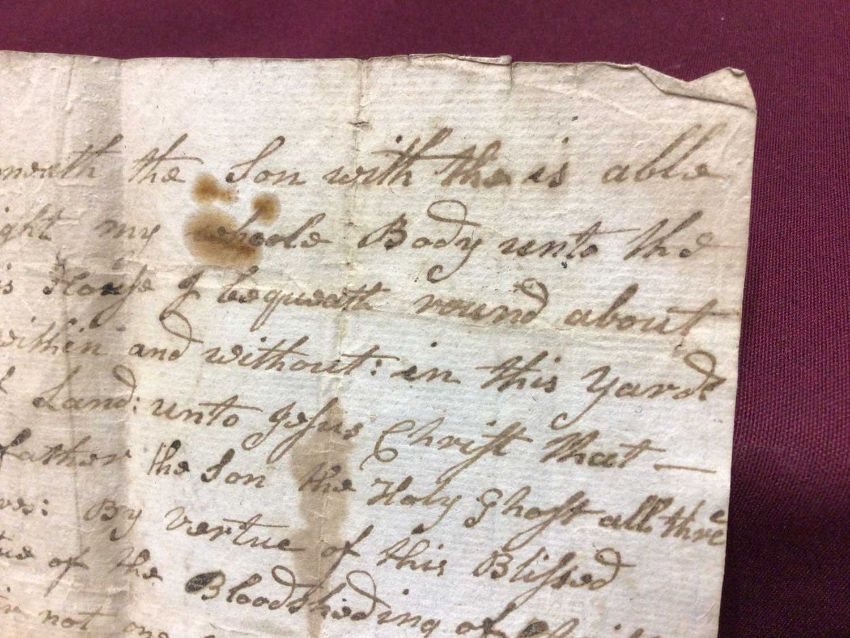 neath the Son with the is able
ight my whoole Body unto the
is House I bequeath round about
within and without: in this Yard
Land: unto Jesus Christ that —
father the Son the Holy Ghost all thre
By vertue of this Blissed
tue of the Bloodsheding of
not one